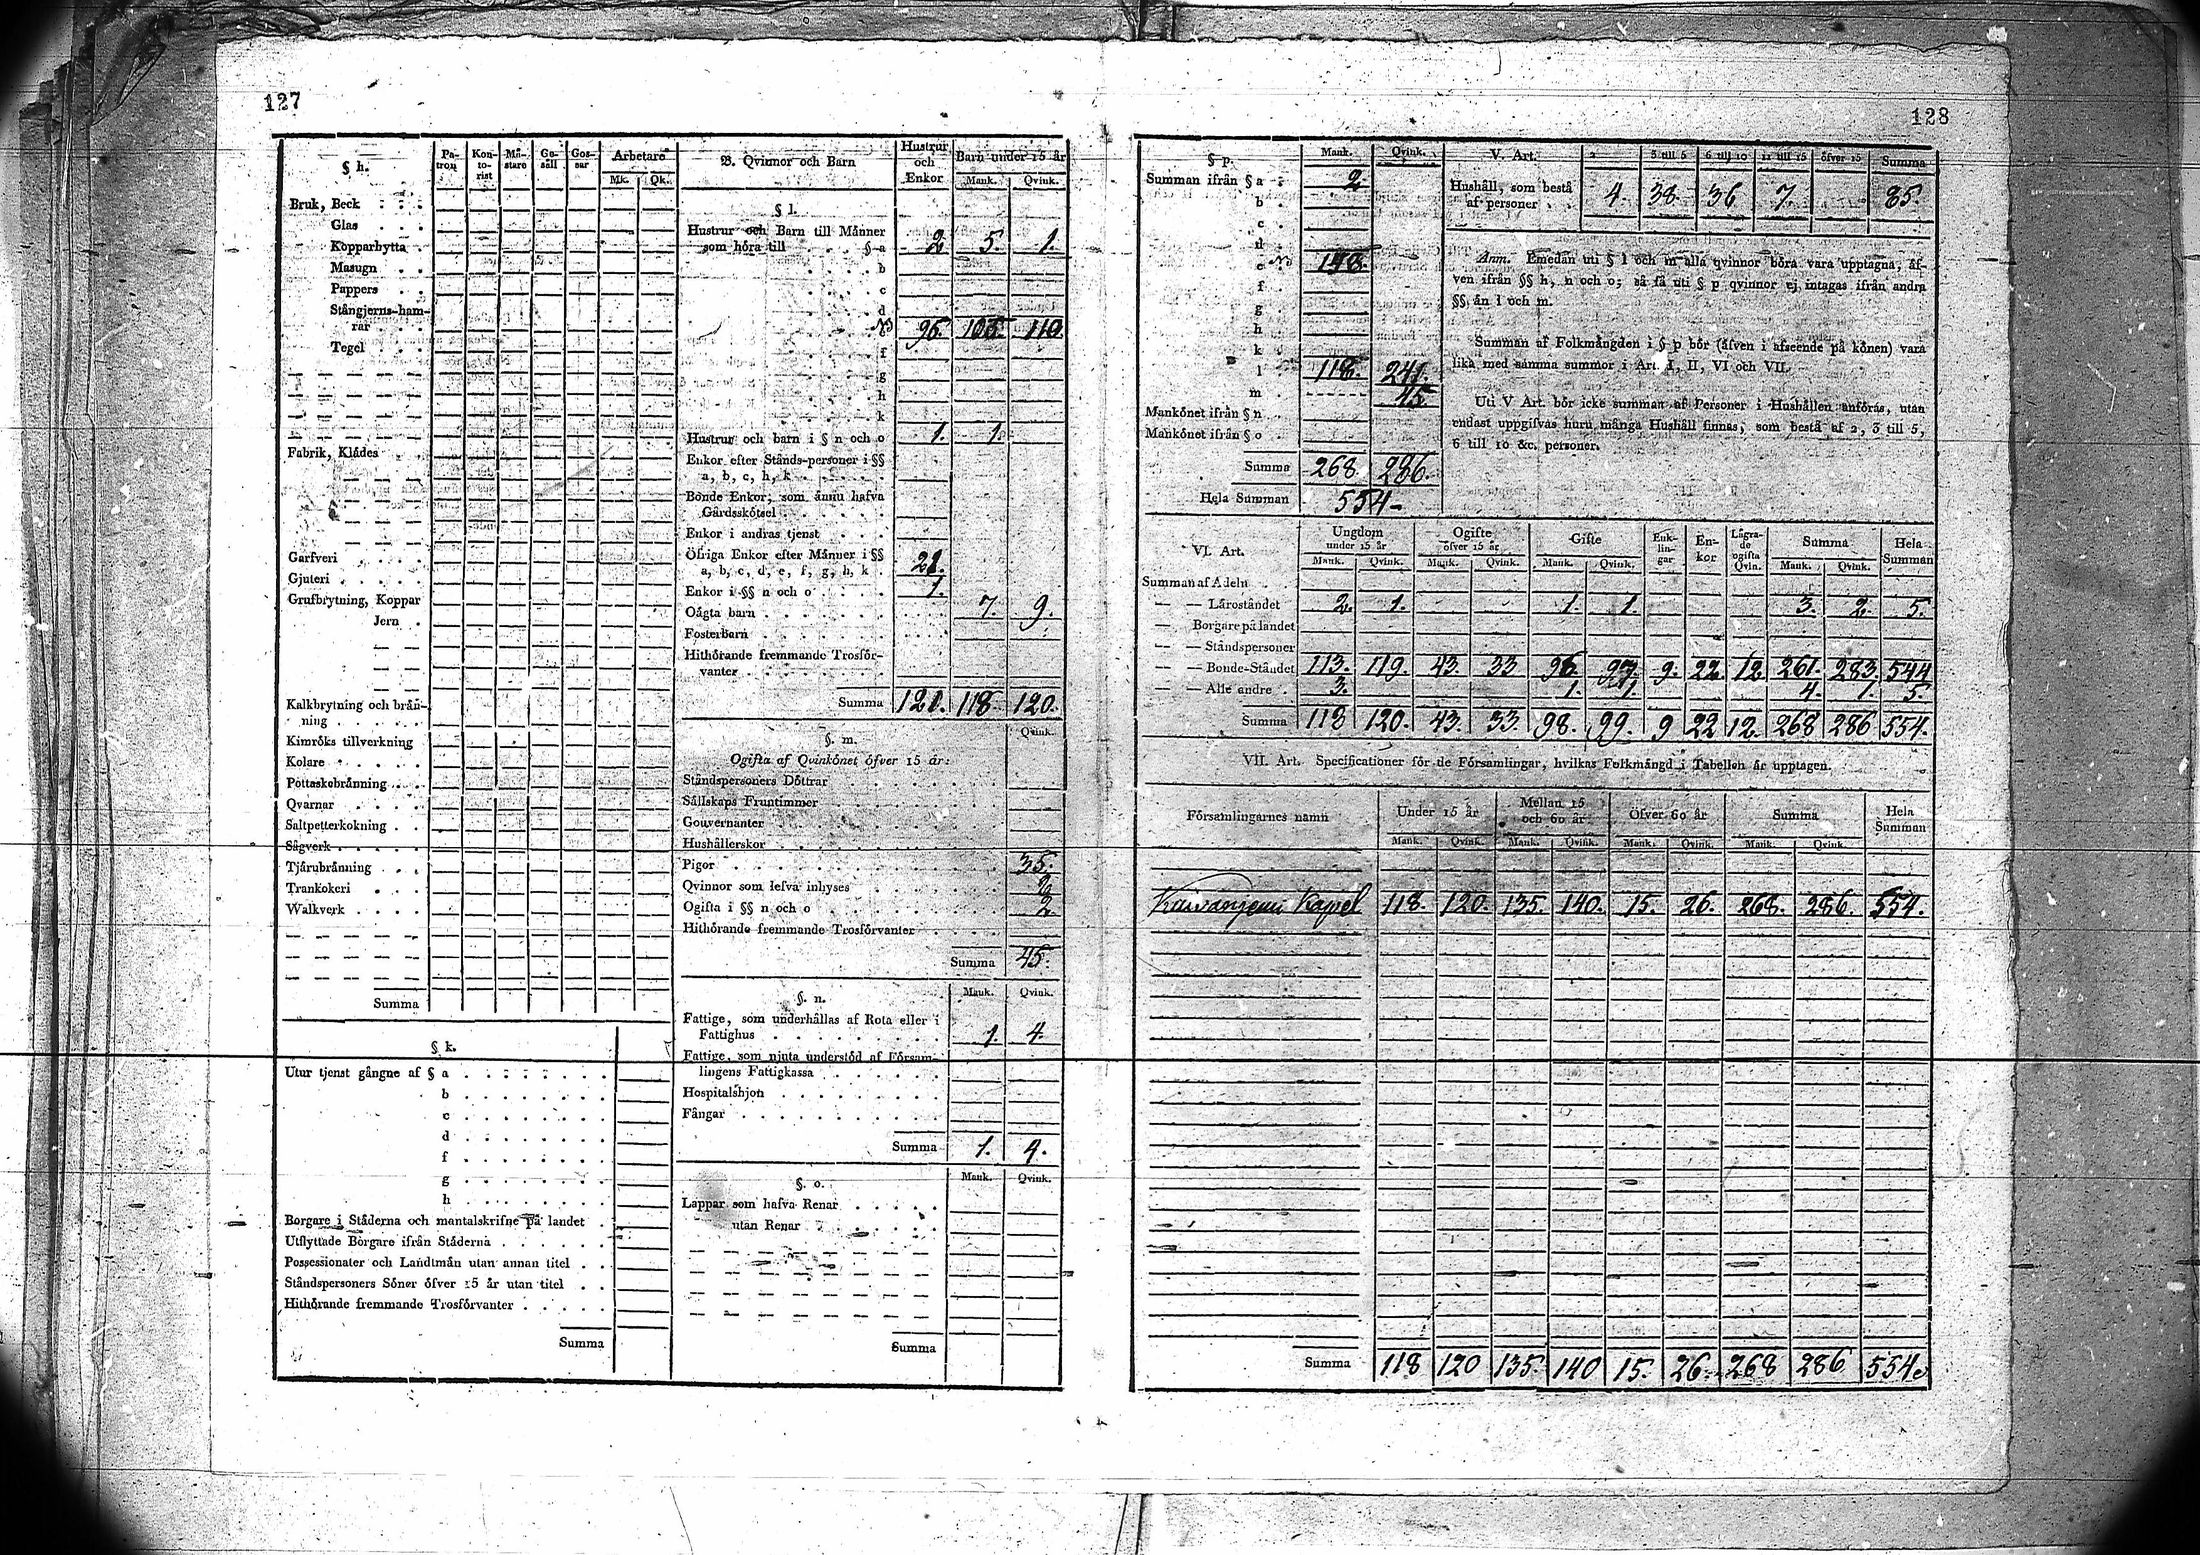 127
§ h.
Pa-
tron
Kon-
to-
rist
Må-
stare
Ge-
säll
Gos-
sar
Arbetare
Mk. Qk.
Bruk, Beck
Glas
Kopparhytta
Masugn
Pappers
Stångjerns-ham-
rar
Tegel
Fabrik, Klädes
Garfveri
Gjuteri
Grufbrytning, Koppar
Jern
Kalkbrytning och brån-
ning
Kimröks tillverkning
Kolare
Pottaskebränning
Qvarnar
Saltpetterkokning
Sågverk
Tjärubränning
Trankokeri
Walkverk
Summa
§ k.
Utur tjenst gångne af § a
b
c
d
f
g
h
Borgare i Städerna och mantalskrifne på landet
Utflyttade Borgare ifrån Städerna
Possessionater och Landtmän utan annan titel
Ståndspersoners Söner öfver 15 år utan titel
Hithörande fremmande Trosförvanter
Summa
B. Qvinnor och Barn
Hustrur
och
Enkor
Barn under 15 år
Mank. Qvink.
§ l.
Hustrur och Barn till Männer
som höra till § a 2 5. 1.
b
c
d
e 96. 105. 110.
f
g
h
k
Hustrur och barn i § n och o 1. 1.
Enkor efter Stånds-personer i §§
a, b, c, h, k
Bonde Enkor, som ännu hafva
Gårdsskötsel
Enkor i andras tjenst
Öfriga Enkor efter Männer i §§
a, b, c, d, e, f, g, h, k 21.
Enkor i §§ n och o 1.
Oägta barn 7. 9.
Fosterbarn
Hithörande fremmande Trosför-
vanter
Summa 121. 118. 120.
§. m.
Qvink.
Ogifta af Qvinkönet öfver 15 år:
Ståndspersoners Döttrar
Sällskaps Fruntimmer
Gouvernanter
Hushållerskor
Pigor 35.
Qvinnor som lefva inhyses
Ogifta i §§ n och o 2.
Hithörande fremmande Trosförvanter
Summa 45.
§. n.
Mank. Qvink.
Fattige, som underhållas af Rota eller i
Fattighus 1. 4.
Fattige, som njuta understöd af Försam-
lingens Fattigkassa
Hospitalshjon
Fångar
Summa 1. 4.
§. o.
Mank. Qvink.
Lappar som hafva Renar
utan Renar
Summa
128
§ p.
Mank. Qvink.
Summan ifrån § a 2
b
c
d
e 148.
f
g
h
k
l 118. 241.
m 45
Mankönet ifrån § n
Mankönet ifrån § o
Summa 268. 286.
Hela Summan 554-
V. Art.
2 3 till 5 6 till 10 11 till 15 öfver 15 Summa
Hushåll, som bestå
af personer 4. 38. 36 7. 85.
Anm. Emedan uti § l och m alla qvinnor böra vara upptagna, äf-
ven ifrån §§ h, n och o; så få uti § p qvinnor ej intagas ifrån andra
§§ än l och m.
Summan af Folkmängden i § p bör (äfven i afseende på könen) vara
lika med samma summor i Art. I, II, VI och VII.
Uti V Art. bör icke summan af Personer i Hushållen anföras, utan
endast uppgifvas huru många Hushåll finnas, som bestå af 2, 3 till 5,
6 till 10 &c. personer.
VI. Art.
Ungdom
under 15 år
Ogifte
öfver 15 år
Gifte
Enk-
lin-
gar
En-
kor
Lägra-
de
ogifta
Qvin.
Summa
Hela
Summan
Mank. Qvink. Mank. Qvink. Mank. Qvink. Mank. Qvink.
Summan af Adeln
— — Läroståndet 2. 1. 1. 1. 3. 2. 5.
— Borgare på landet
— — Ståndspersoner
— — Bonde-Ståndet 113. 119. 43. 33 96. 97. 9. 22 12 261. 283. 544
— — Alle andre 3. 1. 1. 4. 1. 5.
Summa 118 120. 43. 33. 98. 99. 9 22 12. 268 286 554.
VII. Art. Specificationer för de Församlingar, hvilkas Folkmängd i Tabellen är upptagen.
Församlingarnes namn
Under 15 år
Mellan 15
och 60 år
Öfver 60 år
Summa
Hela
Summan
Mank. Qvink. Mank. Qvink. Mank. Qvink. Mank. Qvink.
Kuivaniemi Kapel 118. 120. 135. 140. 15. 26. 268. 286. 554.
Summa 118 120 135. 140 15. 26. 268 286 554.